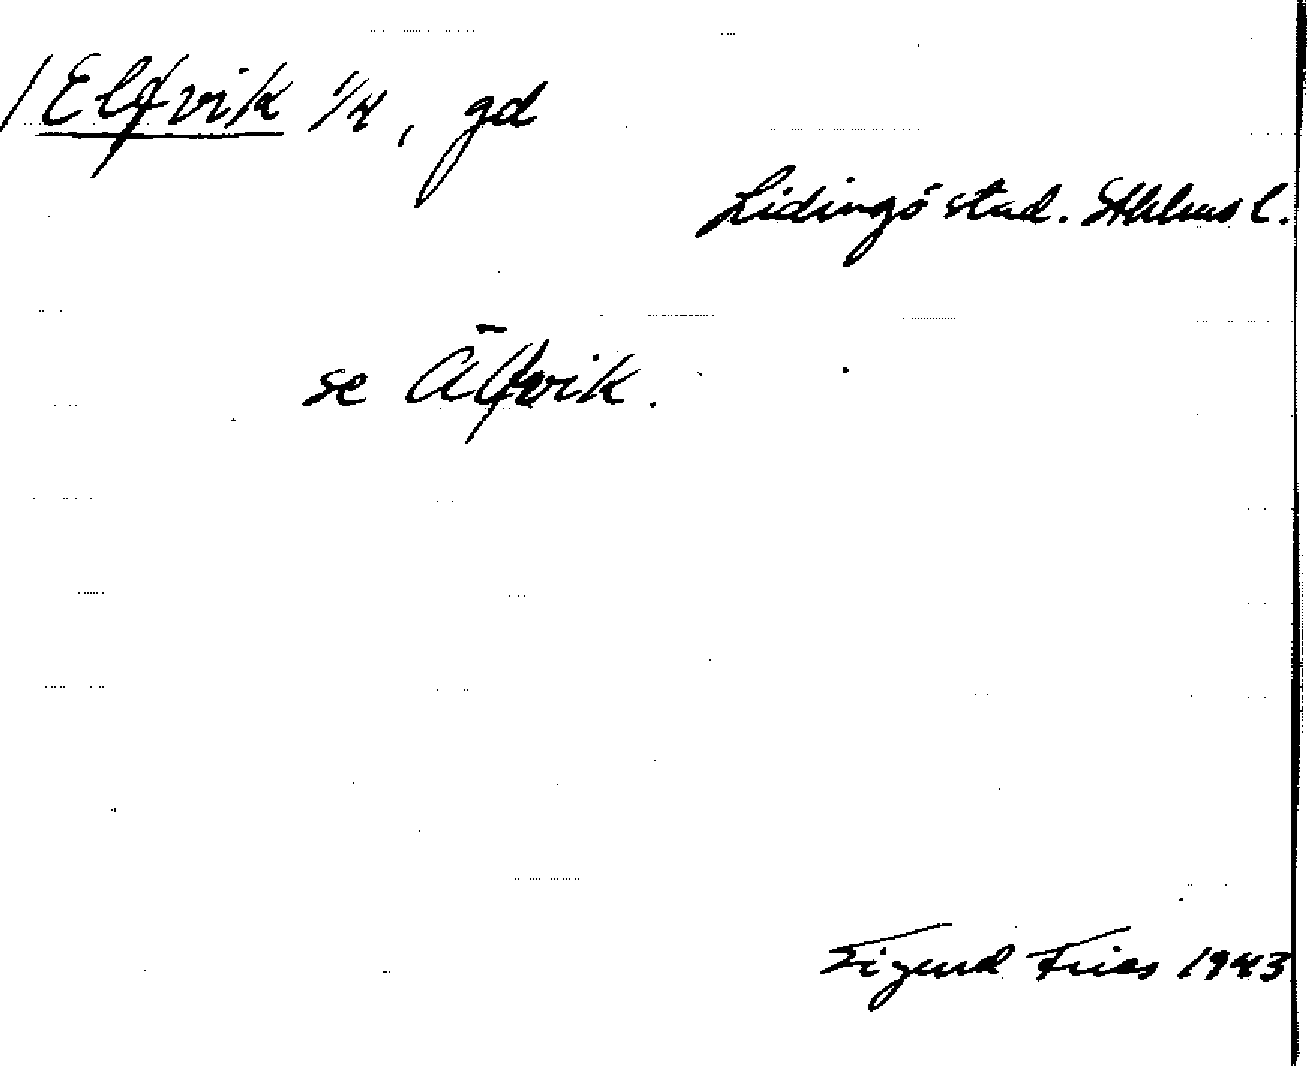 / Elfvik 1/4, gd
Lidingö stad. Sthlms l.
se Älfvik.
Sigurd Fries 1943